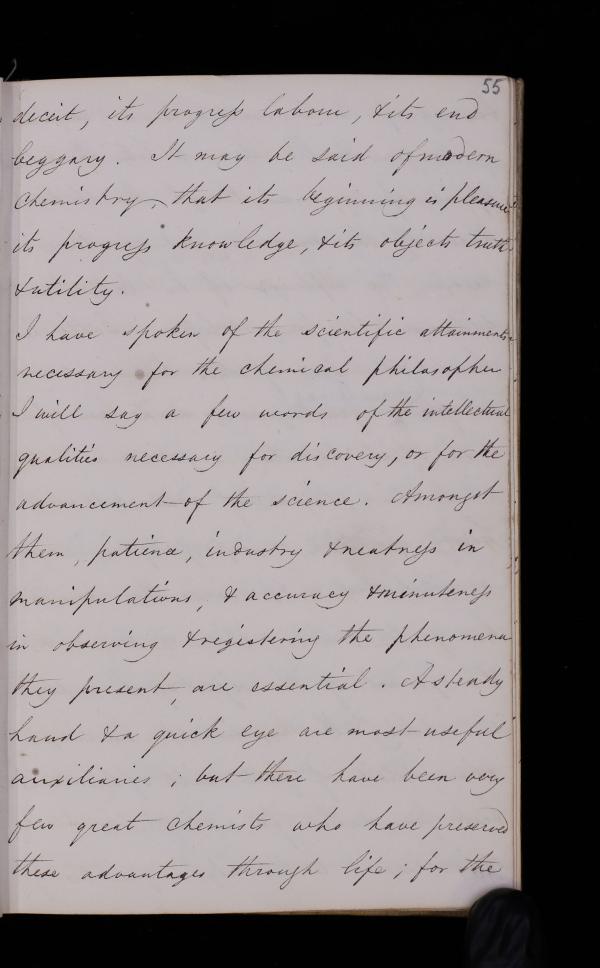 55
deceit, its progress labour, & its end
beggary. It may be said of modern
chemistry, that its beginning is pleasure
its progress knowledge, & its objects truth
& utility.
I have spoken of the scientific attainments
necessary for the chemical philosopher
I will say a few words of the intellectual
qualities necessary for discovery, or for the
advancement of the science. Amongst
them, patience, industry & neatness in
manipulations, & accuracy & minuteness
in observing & registering the phenomena
they present, are essential. A steady
hand & a quick eye are most useful
auxiliaries; but there have been very
few great chemists who have preserved
these advantages through life; for the